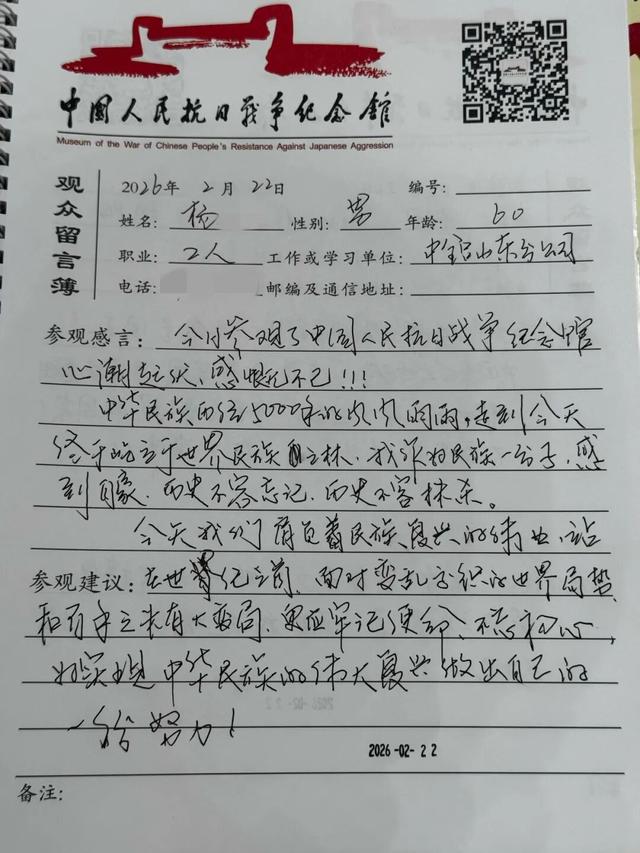 中国人民抗日战争纪念馆
Museum of the War of Chinese People's Resistance Against Japanese Aggression
观众留言簿
2026年 2月 22日 编号:
姓名: 杨 性别: 男 年龄: 60
职业: 工人 工作或学习单位: 中铝山东分公司
电话: 邮编及通信地址:
参观感言: 今日参观了中国人民抗日战争纪念馆
心潮起伏、感慨不已!!!
中华民族历经5000年的风风雨雨,走到今天
终于屹立于世界民族之林.我作为民族一分子,感
到自豪.历史不容忘记.历史不容抹杀。
今天我们肩负着民族复兴的伟业,站
参观建议: 在世纪之前.面对变乱交织的世界局势
和百年之未有大变局.更应牢记使命、不忘初心,
为实现中华民族的伟大复兴做出自己的
一份努力!
2026-02-22
备注: